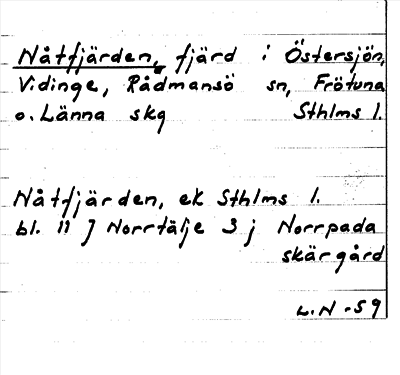 Nåtfjärden, fjärd i Östersjön,
Vidinge, Rådmansö sn, Frötuna
o. Länna skg Sthlms l.
Nåtfjärden, ek Sthlms l.
bl. 11 J Norrtälje 3 j Norrpada
skärgård
L.N -59